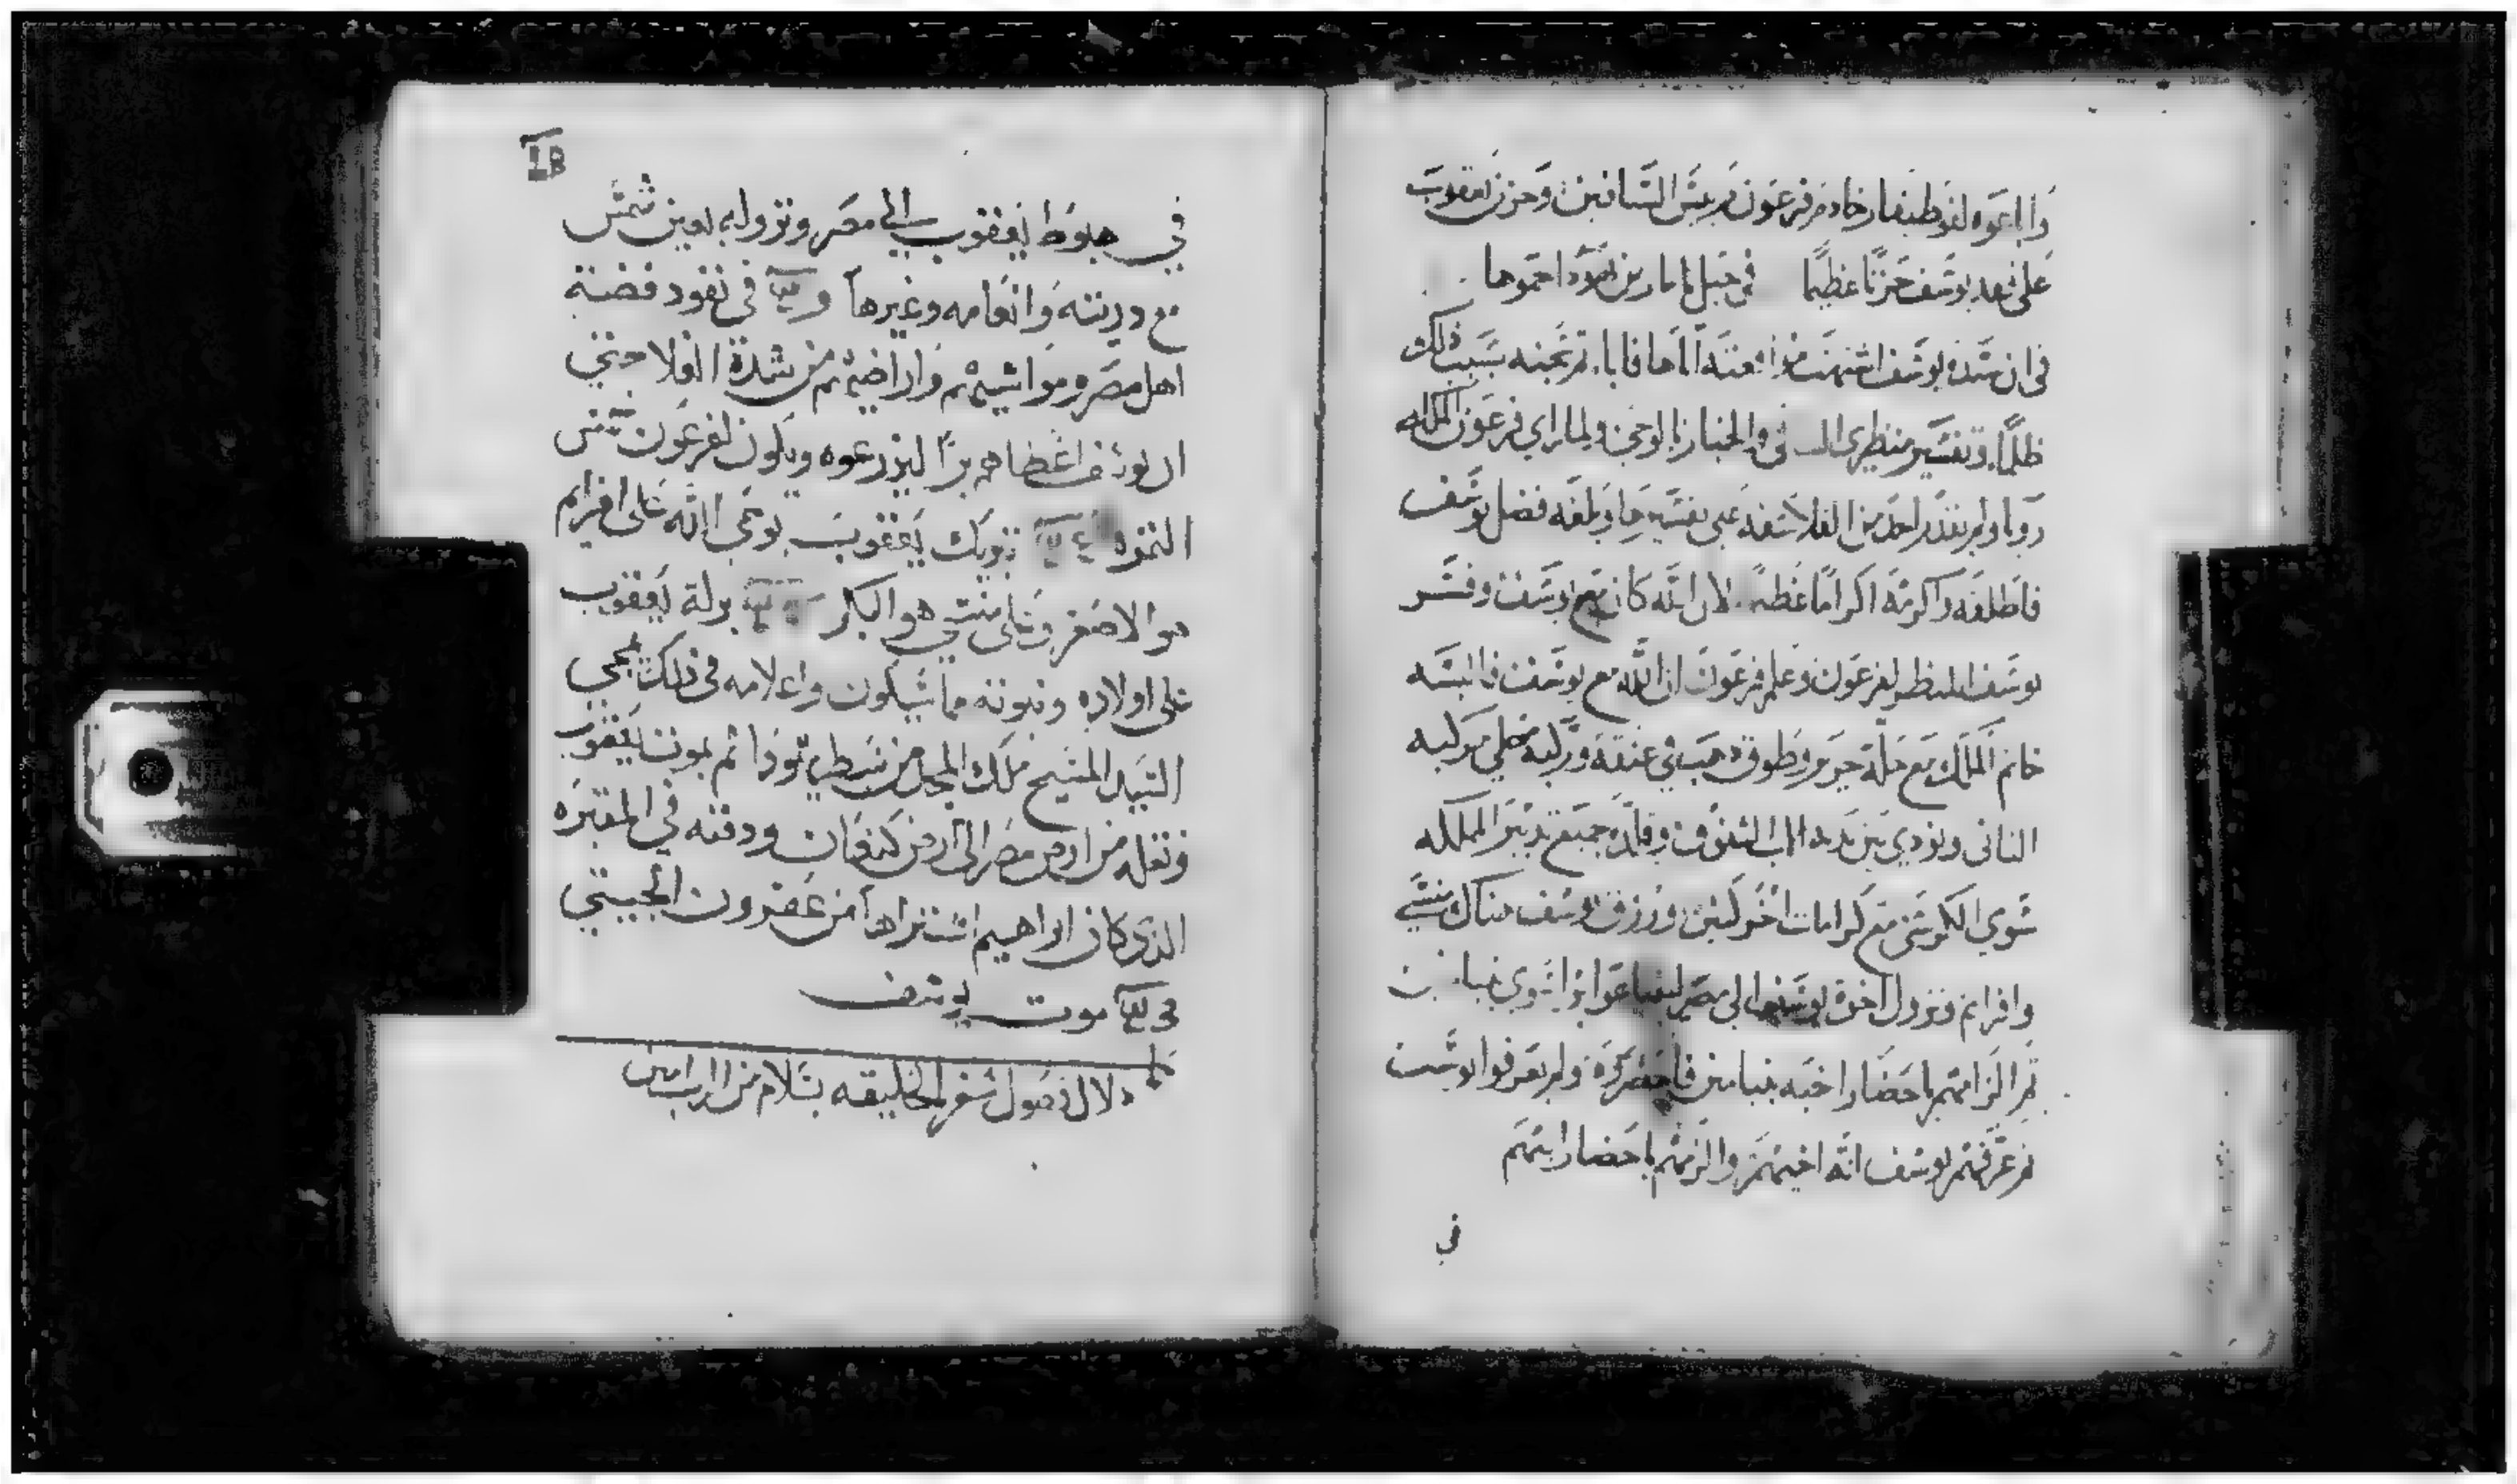 واباعوه لفوطيفار خادم فرعون رييس السيافين وحزن يعقوب
على بعد يوسف حزنًا عظيمًا في حبل تامار من يهودا حموها
في ان سيدة يوسف اشتهت منه فاباء ثم سجنه بسبب ذلك
ظلمًا وتفسير منظري الساقي والخباز بالوحي ولما راى فرعون الملك
رويا ولم يقدر احد من الفلاسفه على تفسيرها وبلغه فضل يوسف
فاطلقه واكرمه اكرامًا عظيمًا لان الله كان مع يوسف وفسر
يوسف المنظر لفرعون وعلم فرعون ان الله مع يوسف فالبسه
خاتم الملك مع حلة حرير وطوق دهب في عنقه وركبه على مركبه
الثاني ونودي بين يديه وقلده جميع تدبير المملكه
سوى الكرسي مع كرامات اخر كثير ورزق يوسف هناك منسى
وافرام ونزول اخوة يوسف الى مصر ليبتاعوا برًا سوى بنيامين
ثم الزامهم باحضار اخيه بنيامين فاحضروه ولم يعرفوا يوسف
ثم عرفهم يوسف انه اخيهم والزمهم باحضار ابيهم
في
ⲒⲂ
في هبوط يعقوب الى مصر ونزوله بعين شمس
مع دريته وانعامه وغيرها و في نفود فضة
اهل مصر ومواشيهم واراضيهم من شدة الغلا حتى
ان يوسف اعطاهم برًا ليزرعوه ويكون لفرعون خمس
الثمره تبريك يعقوب بوحي الله على افرام
هو الاصغر وعلى منسى هو البكر بركة يعقوب
على اولاده ونبوته مما سيكون واعلامه في ذلك بمجي
السيد المسيح ملك المجد من سبط يهوذا ثم بموت يعقوب
ونقله من ارض مصر الى ارض كنعان ودفنه في المقبره
الذي كان ابراهيم اشتراها من عفرون الحيثي
في موت يوسف
دلال فصول سفر الخليقه بسلام من الرب امين